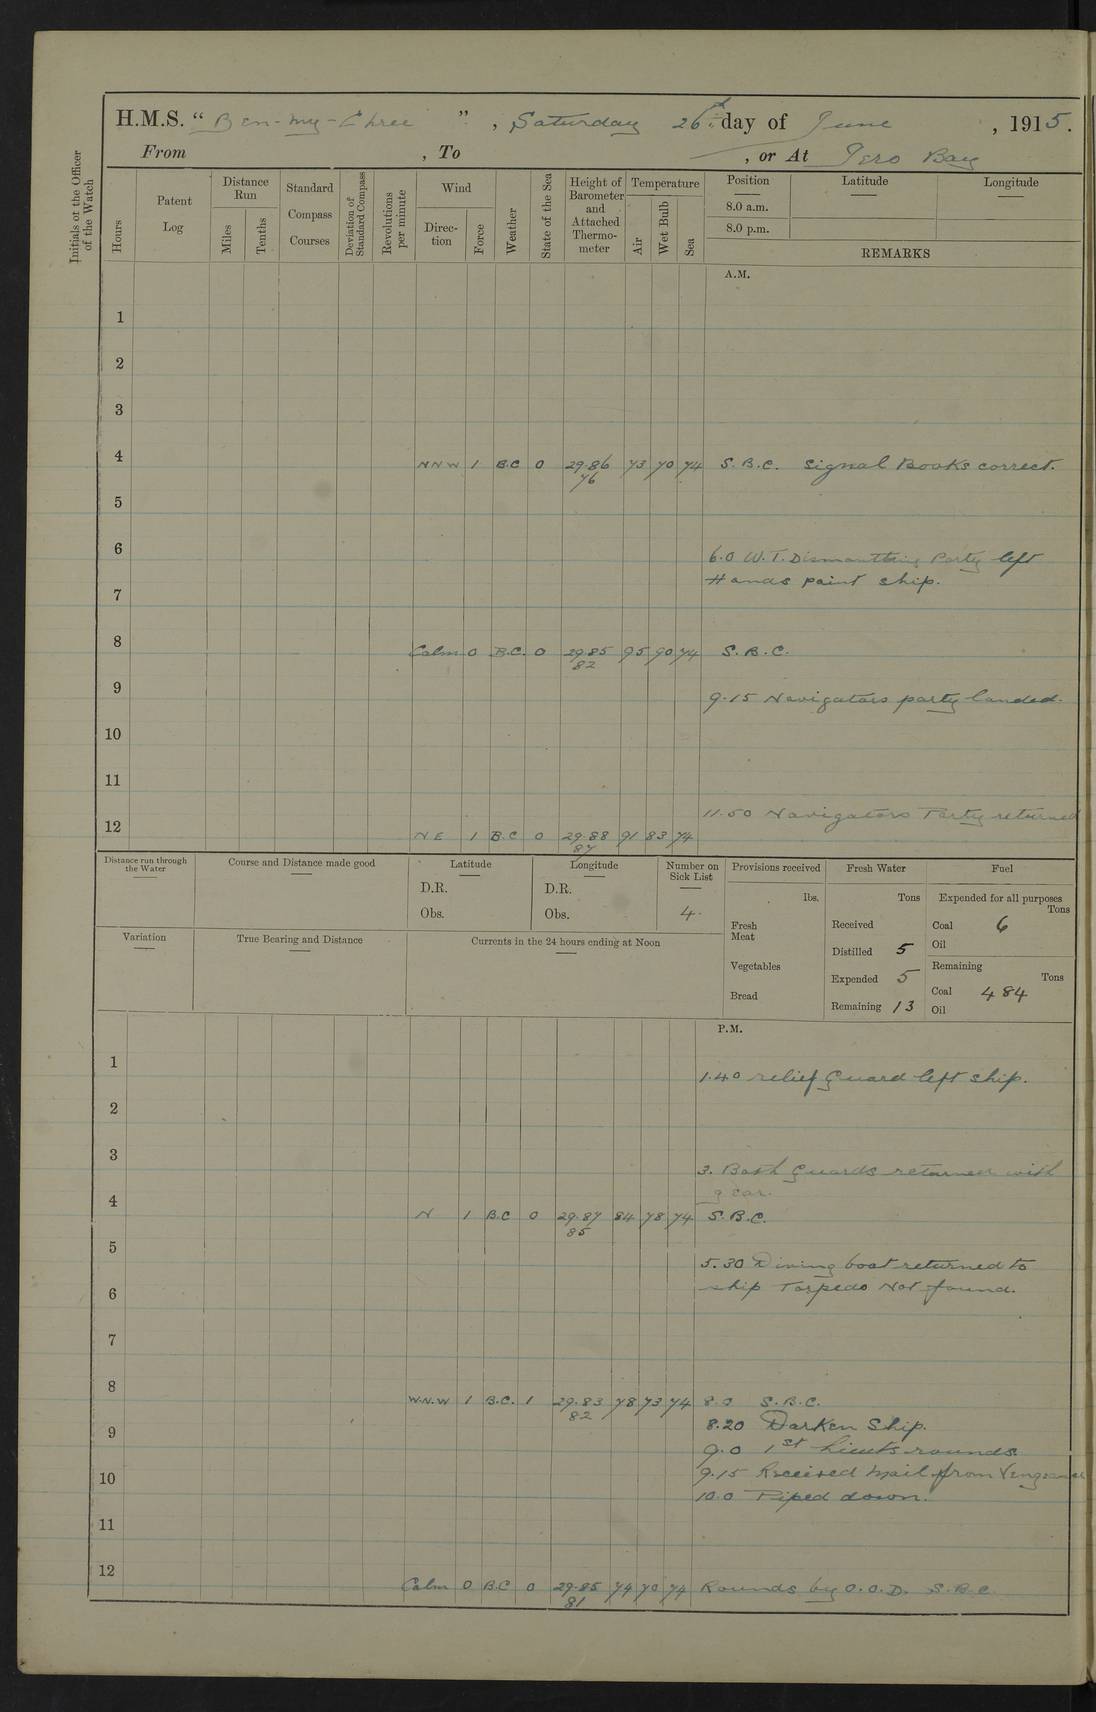 H.M.S. " Ben-my-Chree ", Saturday 26th day of June, 1915.
From , To , or At Iero Bay
Initials of the Officer of the Watch
Hours
Patent Log
Distance Run
Miles
Tenths
Standard Compass Courses
Deviation of Standard Compass
Revolutions per minute
Wind
Direction
Force
Weather
State of the Sea
Height of Barometer and Attached Thermo-meter
Temperature
Air
Wet Bulb
Sea
Position
Latitude
Longitude
8.0 a.m.
8.0 p.m.
REMARKS
A.M.
1
2
3
4 NNW 1 B.C 0 29.86 73 70 74 S.B.C. Signal Books correct.
76
5
6 6.0 W.T. Dismantling Party left
Hands paint ship.
7
8 Calm 0 B.C. 0 29.85 95 90 74 S.B.C.
82
9 9.15 Navigators party landed.
10
11
11.50 Navigators Party returned
12 NE 1 B.C 0 29.88 91 83 74
87
Distance run through the Water
Course and Distance made good
Latitude
D.R.
Obs.
Longitude
D.R.
Obs.
Number on Sick List
4.
Provisions received
lbs.
Fresh Meat
Vegetables
Bread
Fresh Water
Tons
Received
Distilled 5
Expended 5
Remaining 13
Fuel
Expended for all purposes
Tons
Coal 6
Oil
Remaining
Tons
Coal 484
Oil
Variation
True Bearing and Distance
Currents in the 24 hours ending at Noon
P.M.
1
1.40 relief Guard left ship.
2
3
3. Both Guards returned with
gear.
4 N 1 B.C 0 29.87 84 78 74 S.B.C.
85
5
5.30 Diving boat returned to
ship Torpedo Not found.
6
7
8 W.N.W 1 B.C. 1 29.83 78 73 74 8.0 S.B.C.
82
8.20 Darken Ship.
9
9.0 1st Lieuts rounds.
9.15 Received mail from Vengeance
10
10.0 Piped down.
11
12 Calm 0 B.C 0 29.85 74 70 74 Rounds by O.O.D. S.B.C.
81